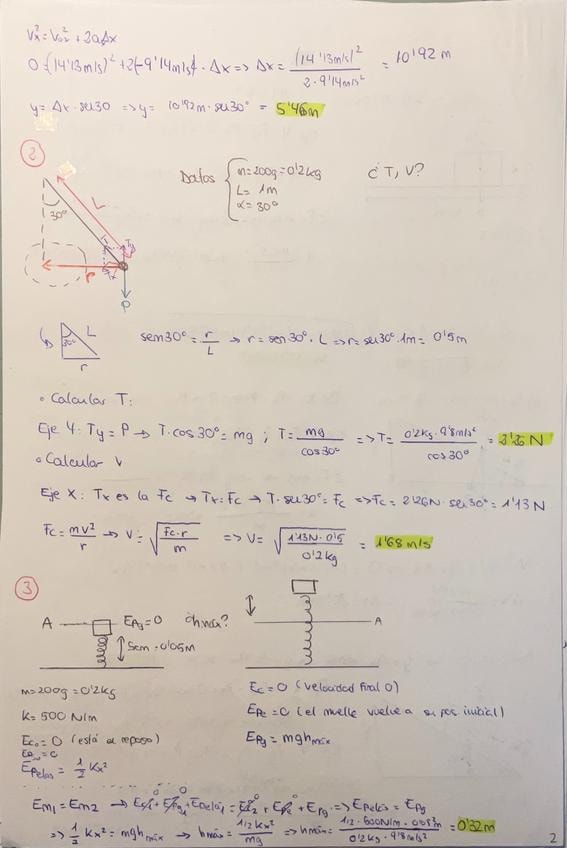 Vx² = Vox² + 2a∆x
0 = (14'13m/s)² + 2(-9'14m/s²) · ∆x => ∆x = (14'13m/s)² / 2·9'14m/s² = 10'92 m
y = ∆x · sen30 => y = 10'92m · sen30° = 5'46m
2
Datos { m = 200g = 0'2kg
L = 1m
α = 30°
¿T, V?
30°
L
Ty
Tx
r
P
30°
L
r
sen30° = r/L → r = sen30° · L => r = sen30° · 1m = 0'5m
• Calcular T:
Eje Y: Ty = P → T · cos30° = mg ; T = mg / cos30° => T = 0'2kg · 9'8m/s² / cos30° = 2'26 N
• Calcular V
Eje X: Tx es la Fc → Tx = Fc → T · sen30° = Fc => Fc = 2'26N · sen30° = 1'13 N
Fc = mv²/r → V = √(Fc · r / m) => V = √(1'13N · 0'5 / 0'2kg) = 1'68 m/s
3
A
EPg = 0
¿hmáx?
5cm = 0'05m
A
m = 200g = 0'2kg
K = 500 N/m
Eco = 0 (está en reposo)
EPelas = 1/2 Kx²
Ec = 0 (velocidad final 0)
EPe = 0 (el muelle vuelve a su pos. inicial)
EPg = mghmáx
Em1 = Em2 → Ec1 + EPg1 + EPelas1 = Ec2 + EPe + EPg => EPelas = EPg
=> 1/2 Kx² = mghmáx → hmáx = 1/2 Kx² / mg => hmáx = 1/2 · 500N/m · 0'05²m / 0'2kg · 9'8m/s² = 0'32 m
2